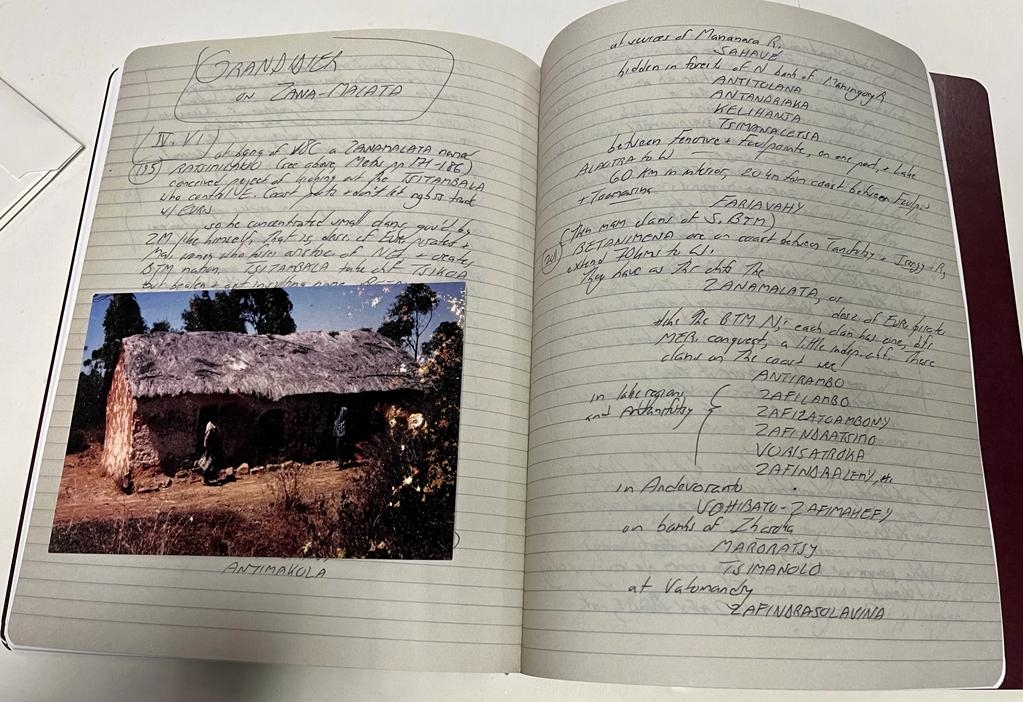 GRANDIDIER
ON ZANA-MALATA
IV. VI
at bgng of VDC a ZANAMALATA name
(135) RATSIMILAHO (see above, Mems pp 171-186)
conceived project of the TSITAMBALA
who control NE. Coast ports + don't let nghbrs trade
w/ EURS
so he concentrated small clans gov'd by
ZM like himself, that is desc. of Eur. pirates +
+ create
BTM nation. TSITAMBALA
but beaten
ANTIMAKOLA
at sources of Mananara R.
SAHAVE
hidden in forests of N bank of Maningory R
ANTITOLANA
ANTANDRIAKA
KELIHANJA
TSIMANALETSA
between Fenerive + Foulpointe, on one part, + Lake
ALAOTRA to W
60 Km in interior, 20 Km from coast between Foulpte
+ Toamasina
FARIAVAHY
(Then main clans of S. BTM)
(241) BETANIMENA are on coast between +
extend 70 kms to W.
They have as their chfs the
ZANAMALATA, or
desc of Eurs pirate
like the BTM N; each clan has one, bfr
MER. conquest, a little indep. chf. There
clans on the coast were
ANTIRAMBO
in lake region, ZAFILAMBO
and ZAFIZATOAMBONY
ZAFINDRATSIMO
VORISATROKA
ZAFINDRALEMY, etc
in Andevoranto
VOHIBATO-ZAFIMAHEFY
on banks of Iharoka
MARORATSY
TSIMANOLO
at Vatomandry
ZAFINDRASOLAVINA